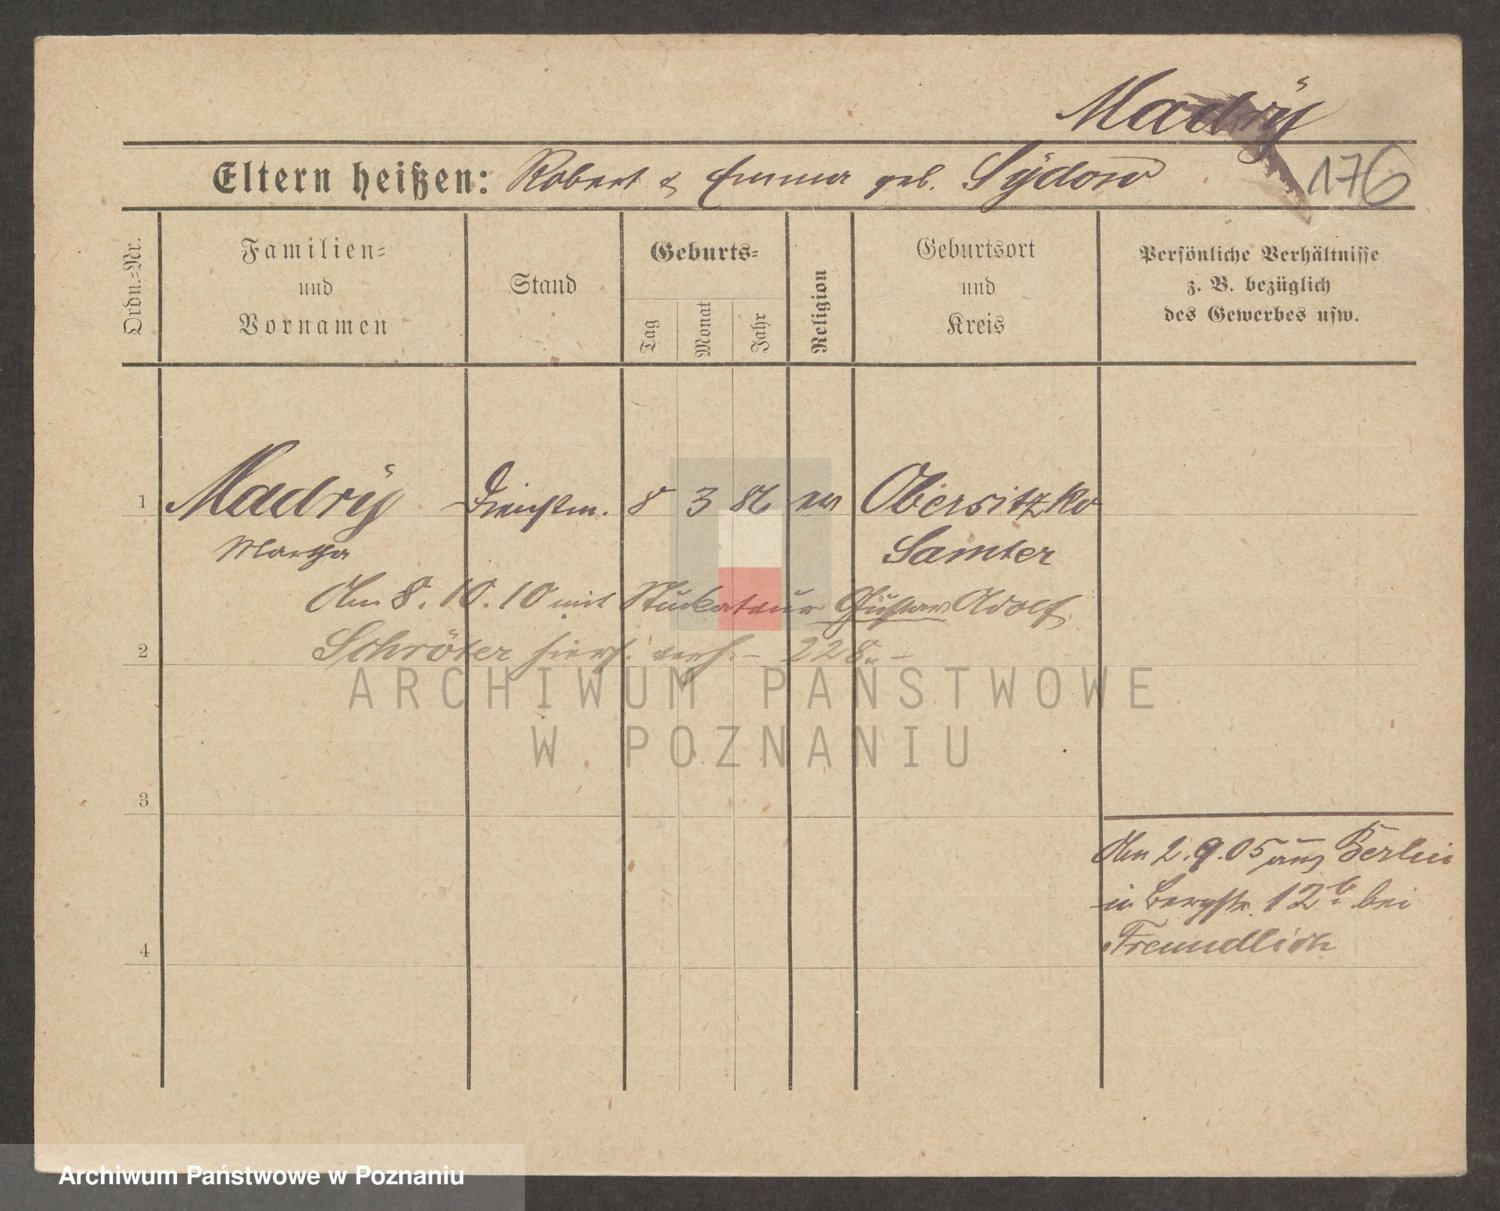 Madrÿ
Eltern heißen: Robert & Emma geb. Sÿdow
176
Ordn.=Nr.
Familien=
und
Vornamen
Stand
Geburts=
Tag
Monat
Jahr
Religion
Geburtsort
und
Kreis
Persönliche Verhältnisse
z. B. bezüglich
des Gewerbes usw.
1 Madrÿ Dienstm. 8 3 86 ev Obersitzko
Martha Samter
Am 8.10.10 mit Stuckateur Gustav Adolf
2 Schröter hiers. verh. - 228. -
ARCHIWUM PAŃSTWOWE
W POZNANIU
3
Am 2.9.05 aus Berlin
in Bergstr. 12b bei
4 Freundlich
Archiwum Państwowe w Poznaniu